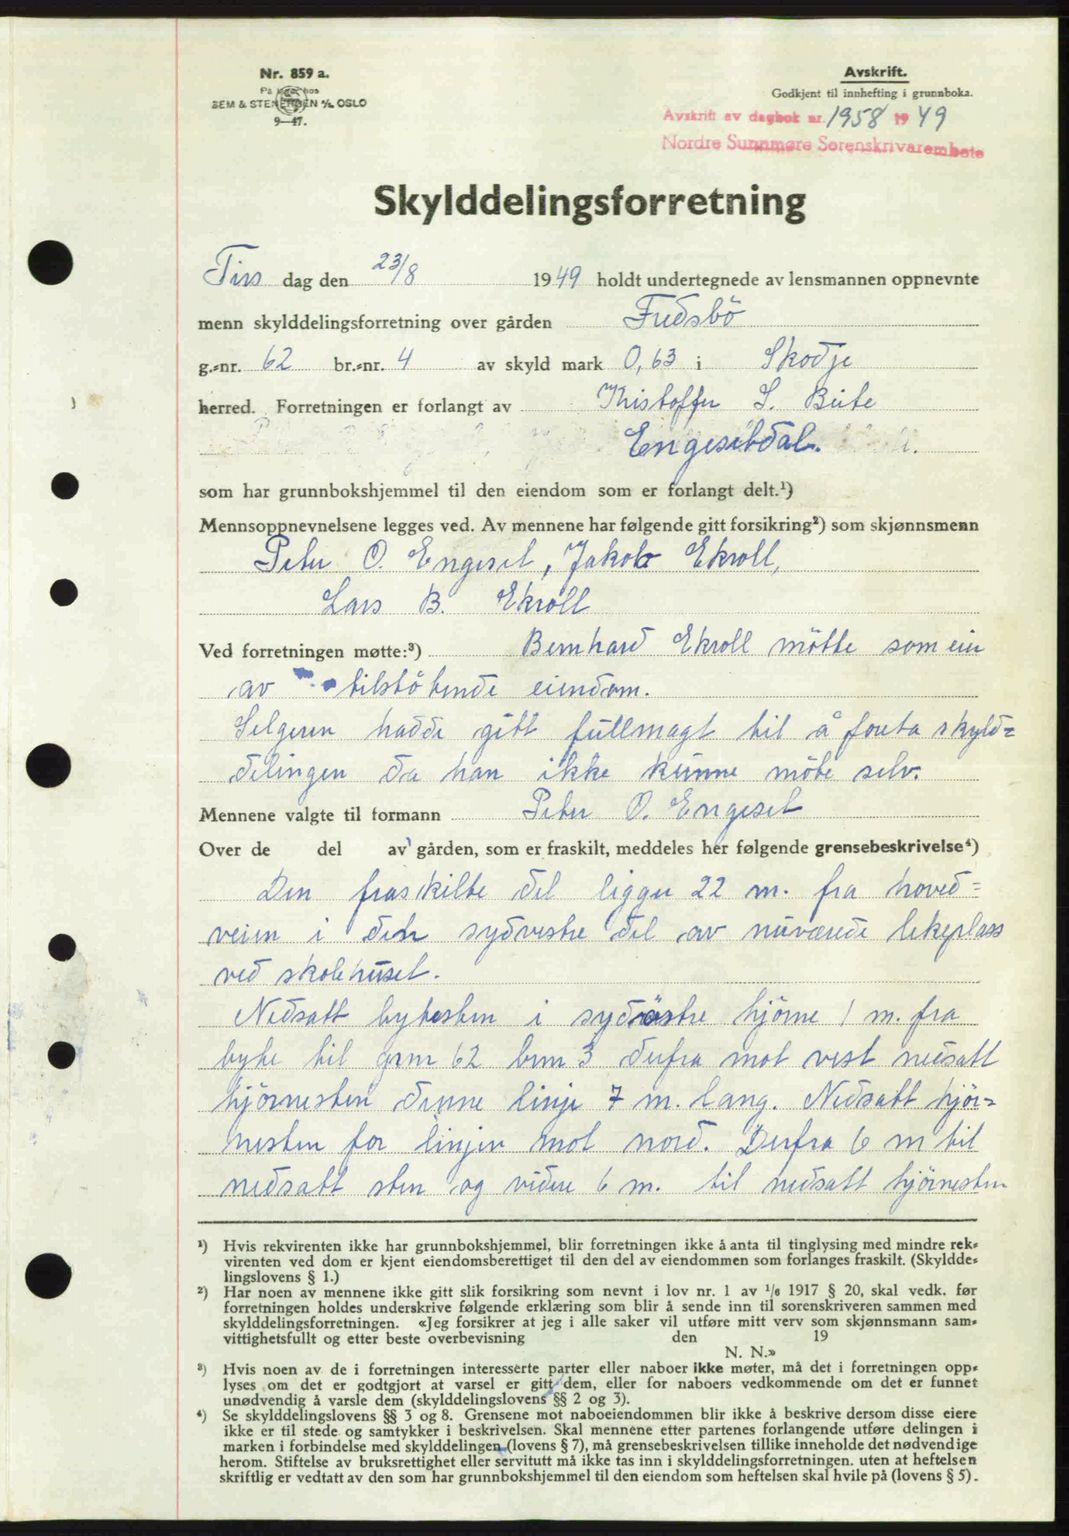 Nr. 859 a.
På lager hos
SEM & STENERSEN A/S, OSLO
9—47.
Avskrift.
Godkjent til innhefting i grunnboka.
Avskrift av dagbok nr. 1958 19 49
Nordre Sunnmøre Sorenskriverembete
Skylddelingsforretning
Tirs dag den 23/8 1949 holdt undertegnede av lensmannen oppnevnte
menn skylddelingsforretning over gården Fuðsbö
g.-nr. 62 br.-nr. 4 av skyld mark 0,63 i Skodje
herred. Forretningen er forlangt av Kristoffer S. Beite
Engesetdal.
som har grunnbokshjemmel til den eiendom som er forlangt delt.¹)
Mennsoppnevnelsene legges ved. Av mennene har følgende gitt forsikring²) som skjønnsmenn
Peter O. Engeset, Jakob Ekroll,
Lars B. Ekroll
Ved forretningen møtte:³) Bernhard Ekroll mötte som eier
av tilstötende eiendom.
Selgeren hadde gitt fullmagt til å foreta skyld=
delingen da han ikke kunne möte selv.
Mennene valgte til formann Peter O. Engeset
Over de del av gården, som er fraskilt, meddeles her følgende grensebeskrivelse⁴)
Den fraskilte del ligger 22 m. fra hoved=
veien i den sydvestre del av nuværede lekeplass
ved skolehuset.
Nedsatt bytesten i sydöstre hjörne 1 m. fra
byte til grnr 62 brnr 3 derfra mot vest nedsatt
hjörnesten denne linje 7 m. lang. Nedsatt hjör=
nesten for linjen mot nord. Derfra 6 m til
nedsatt sten og videre 6 m. til nedsatt hjörnesten
¹) Hvis rekvirenten ikke har grunnbokshjemmel, blir forretningen ikke å anta til tinglysing med mindre rek-
virenten ved dom er kjent eiendomsberettiget til den del av eiendommen som forlanges fraskilt. (Skyldde-
lingslovens § 1.)
²) Har noen av mennene ikke gitt slik forsikring som nevnt i lov nr. 1 av 1/6 1917 § 20, skal vedk. før
forretningen holdes underskrive følgende erklæring som blir å sende inn til sorenskriveren sammen med
skylddelingsforretningen. «Jeg forsikrer at jeg i alle saker vil utføre mitt verv som skjønnsmann sam-
vittighetsfullt og etter beste overbevisning den 19
N. N.»
³) Hvis noen av de i forretningen interesserte parter eller naboer ikke møter, må det i forretningen opp-
lyses om det er godtgjort at varsel er gitt dem, eller for naboers vedkommende om det er funnet
unødvendig å varsle dem (skylddelingslovens §§ 2 og 3).
⁴) Se skylddelingslovens §§ 3 og 8. Grensene mot naboeiendommen blir ikke å beskrive dersom disse eiere
ikke er til stede og samtykker i beskrivelsen. Skal mennene etter partenes forlangende utføre delingen i
marken i forbindelse med skylddelingen (lovens § 7), må grensebeskrivelsen tillike inneholde det nødvendige
herom. Stiftelse av bruksrettighet eller servitutt må ikke tas inn i skylddelingsforretningen, uten at heftelsen
skriftlig er vedtatt av den som har grunnbokshjemmel til den eiendom som heftelsen skal hvile på (lovens § 5).